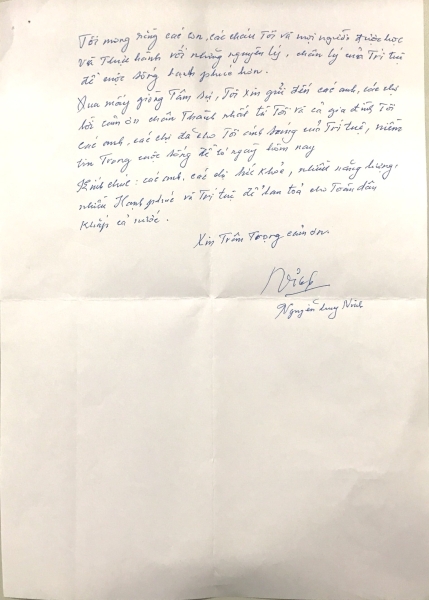 Tôi mong rằng các con, các cháu Tôi và mọi người được học
và Thực hành với những nguyên lý, chân lý của Trí tuệ
để cuộc sống hạnh phúc hơn.
Qua mấy giòng Tâm sự, Tôi xin gửi đến các anh, các chị
lời cảm ơn chân Thành nhất từ Tôi và cả gia đình Tôi
Các anh, các chị đã cho Tôi ánh sáng của Trí tuệ, niềm
tin Trong cuộc sống để có ngày hôm nay
Kính chúc: các anh, các chị sức khoẻ, nhiều năng lượng,
nhiều Hạnh phúc và Trí tuệ để lan toả cho Toàn dân
Khắp cả nước.
Xin Trân Trọng cảm ơn.
Nguyễn Huy Ninh